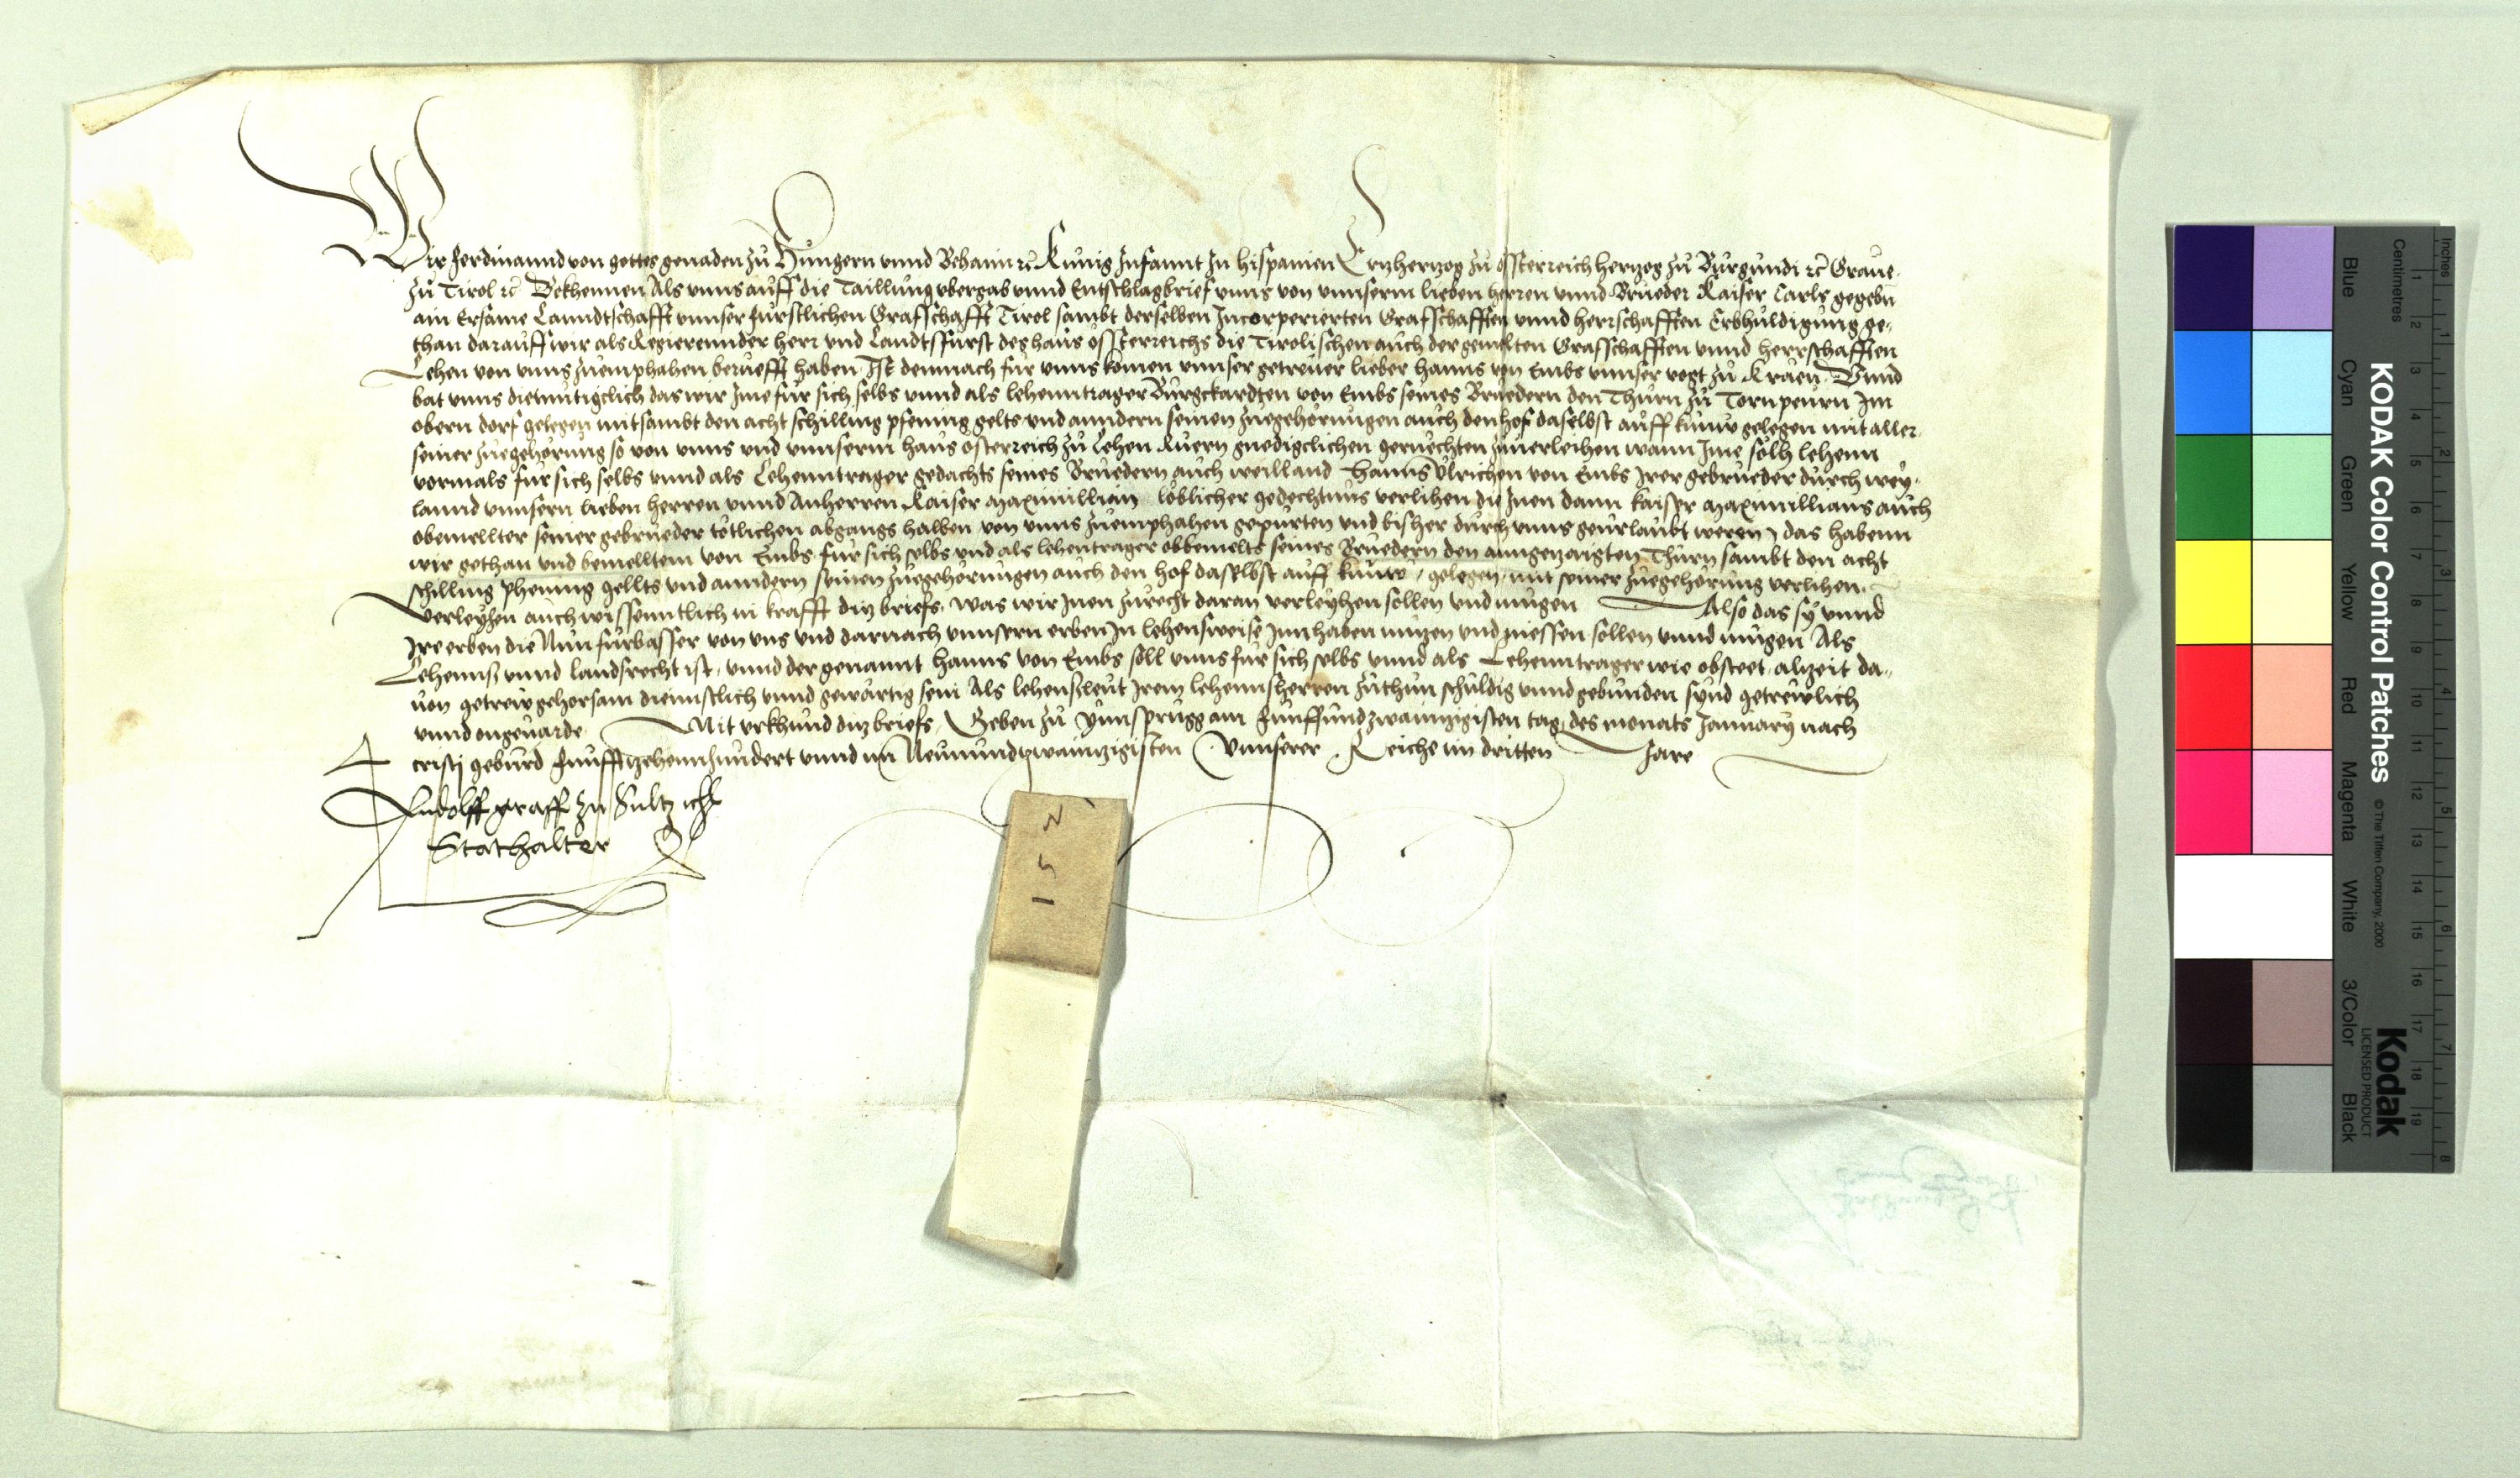 Wir Ferdinannd von gottes genaden zů Hungern vnnd Behaim ꝛc Kunig Infannt In hispanien Ertzhertzog zů Osterreich hertzog zů Burgundi ꝛc Graue
zů Tirol ꝛc Bekhennen Als vnns auff die Taillung vbergab vnnd Entschlagbrief vnns von vnnserm lieben herren vnnd Brueder Kaiser Carls gegebn
ain Ersame Lanndtschafft vnnser furstlichen Grafschafft Tirol sambt derselben Incorperierten Grafschafften vnnd herrschafften Erbhuldigung ge-
than darauff wir als Regierennder herr vnd Landtsfurst des haus Osterreichs die Tirolischen auch der gemelten Grafschafften vnnd herrschafften
Lehen von vnns zuemphahen berůefft haben Ist demnach fur vnns komen vnnser getreuer lieber hanns von Embs vnnser vogt zu Kraen Vnnd
bat vnns diemutigclich das wir Ime fur sich selbs vnnd als lehenntrager Burgckardten von Embs seines Brueders den Thurn zu Tornpeurn Im
obern dorf gelegen mitsambt den acht schilling pfening gelts vnd anndern seinen zuegehorungen auch den hof daselbst auff kunw gelegen mit aller
seiner zuegehorung so von vnns vnd vnnserm haus osterreich zu Lehen Ruern gnedigclichen geruechten zuuerleihen wann Ime solh lehenn
vormals fur sich selbs vnnd als Lehenntrager gedachts seines Brueders auch weilland Hanns Ulrichen von Embs Irer gebrueder durch wey-
lannd vnnsern lieben herren vnnd Anherren Kaiser Maximillian loblicher gedechtnus verlihen die Inen dann kaiser Maximillians auch
obemellter seiner gebrueder totlichen abgangs halben von vnns zuemphahen gepurten vnd bisher durch vnns geurlaubt weren, das habenn
wir gethan vnd bemelltem von Embs fur sich selbs vnd als lehentrager obbemelts seines Brueders den anngezaigten Thurn sambt den acht
schilling phening gellts vnd anndern seinen zuegehorungen auch den hof daselbst auff kunw, gelegen, mit seiner zuegehorung verlihen.
Verleyhen auch wissenntlich in krafft ditz briefs, was wir Inen zurecht daran verleyhen sollen vnd mugen Also das sy vnnd
Ire erben die Nun furbasser von vns vnd darnach vnnsern erben In lehensweise Innhaben nutzen vnd niessen sollen vnnd mugen Als
Lehenns vnnd landsrecht ist, vnnd der genannt hanns von Embs soll vnns fur sich selbs vnnd als Lehenntrager wie obsteet alzeit da-
uon getrew gehorsam diennstlich vnnd gewartig sein Als lehensleut Irem lehennsherren zuthun schuldig vnnd gebunden synd getrewlich
vnnd ongeuarde Mit vrkhund ditz briefs, Geben zu Ynnsprugg am funffundzwainzigisten tag des monats January nach
cristj geburd funfftzehennhundert vnnd im Neunundzwainzigisten Vnnserer Reiche im dritten Jare
Rudolff graff zu Sultz ꝛc
Stathalter
152
KODAK Color Control Patches
© The Tiffen Company, 2000
Kodak
LICENSED PRODUCT
Inches
Centimetres
Blue Cyan Green Yellow Red Magenta White 3/Color Black
1 2 3 4 5 6 7 8 9 10 11 12 13 14 15 16 17 18 19
1 2 3 4 5 6 7 8